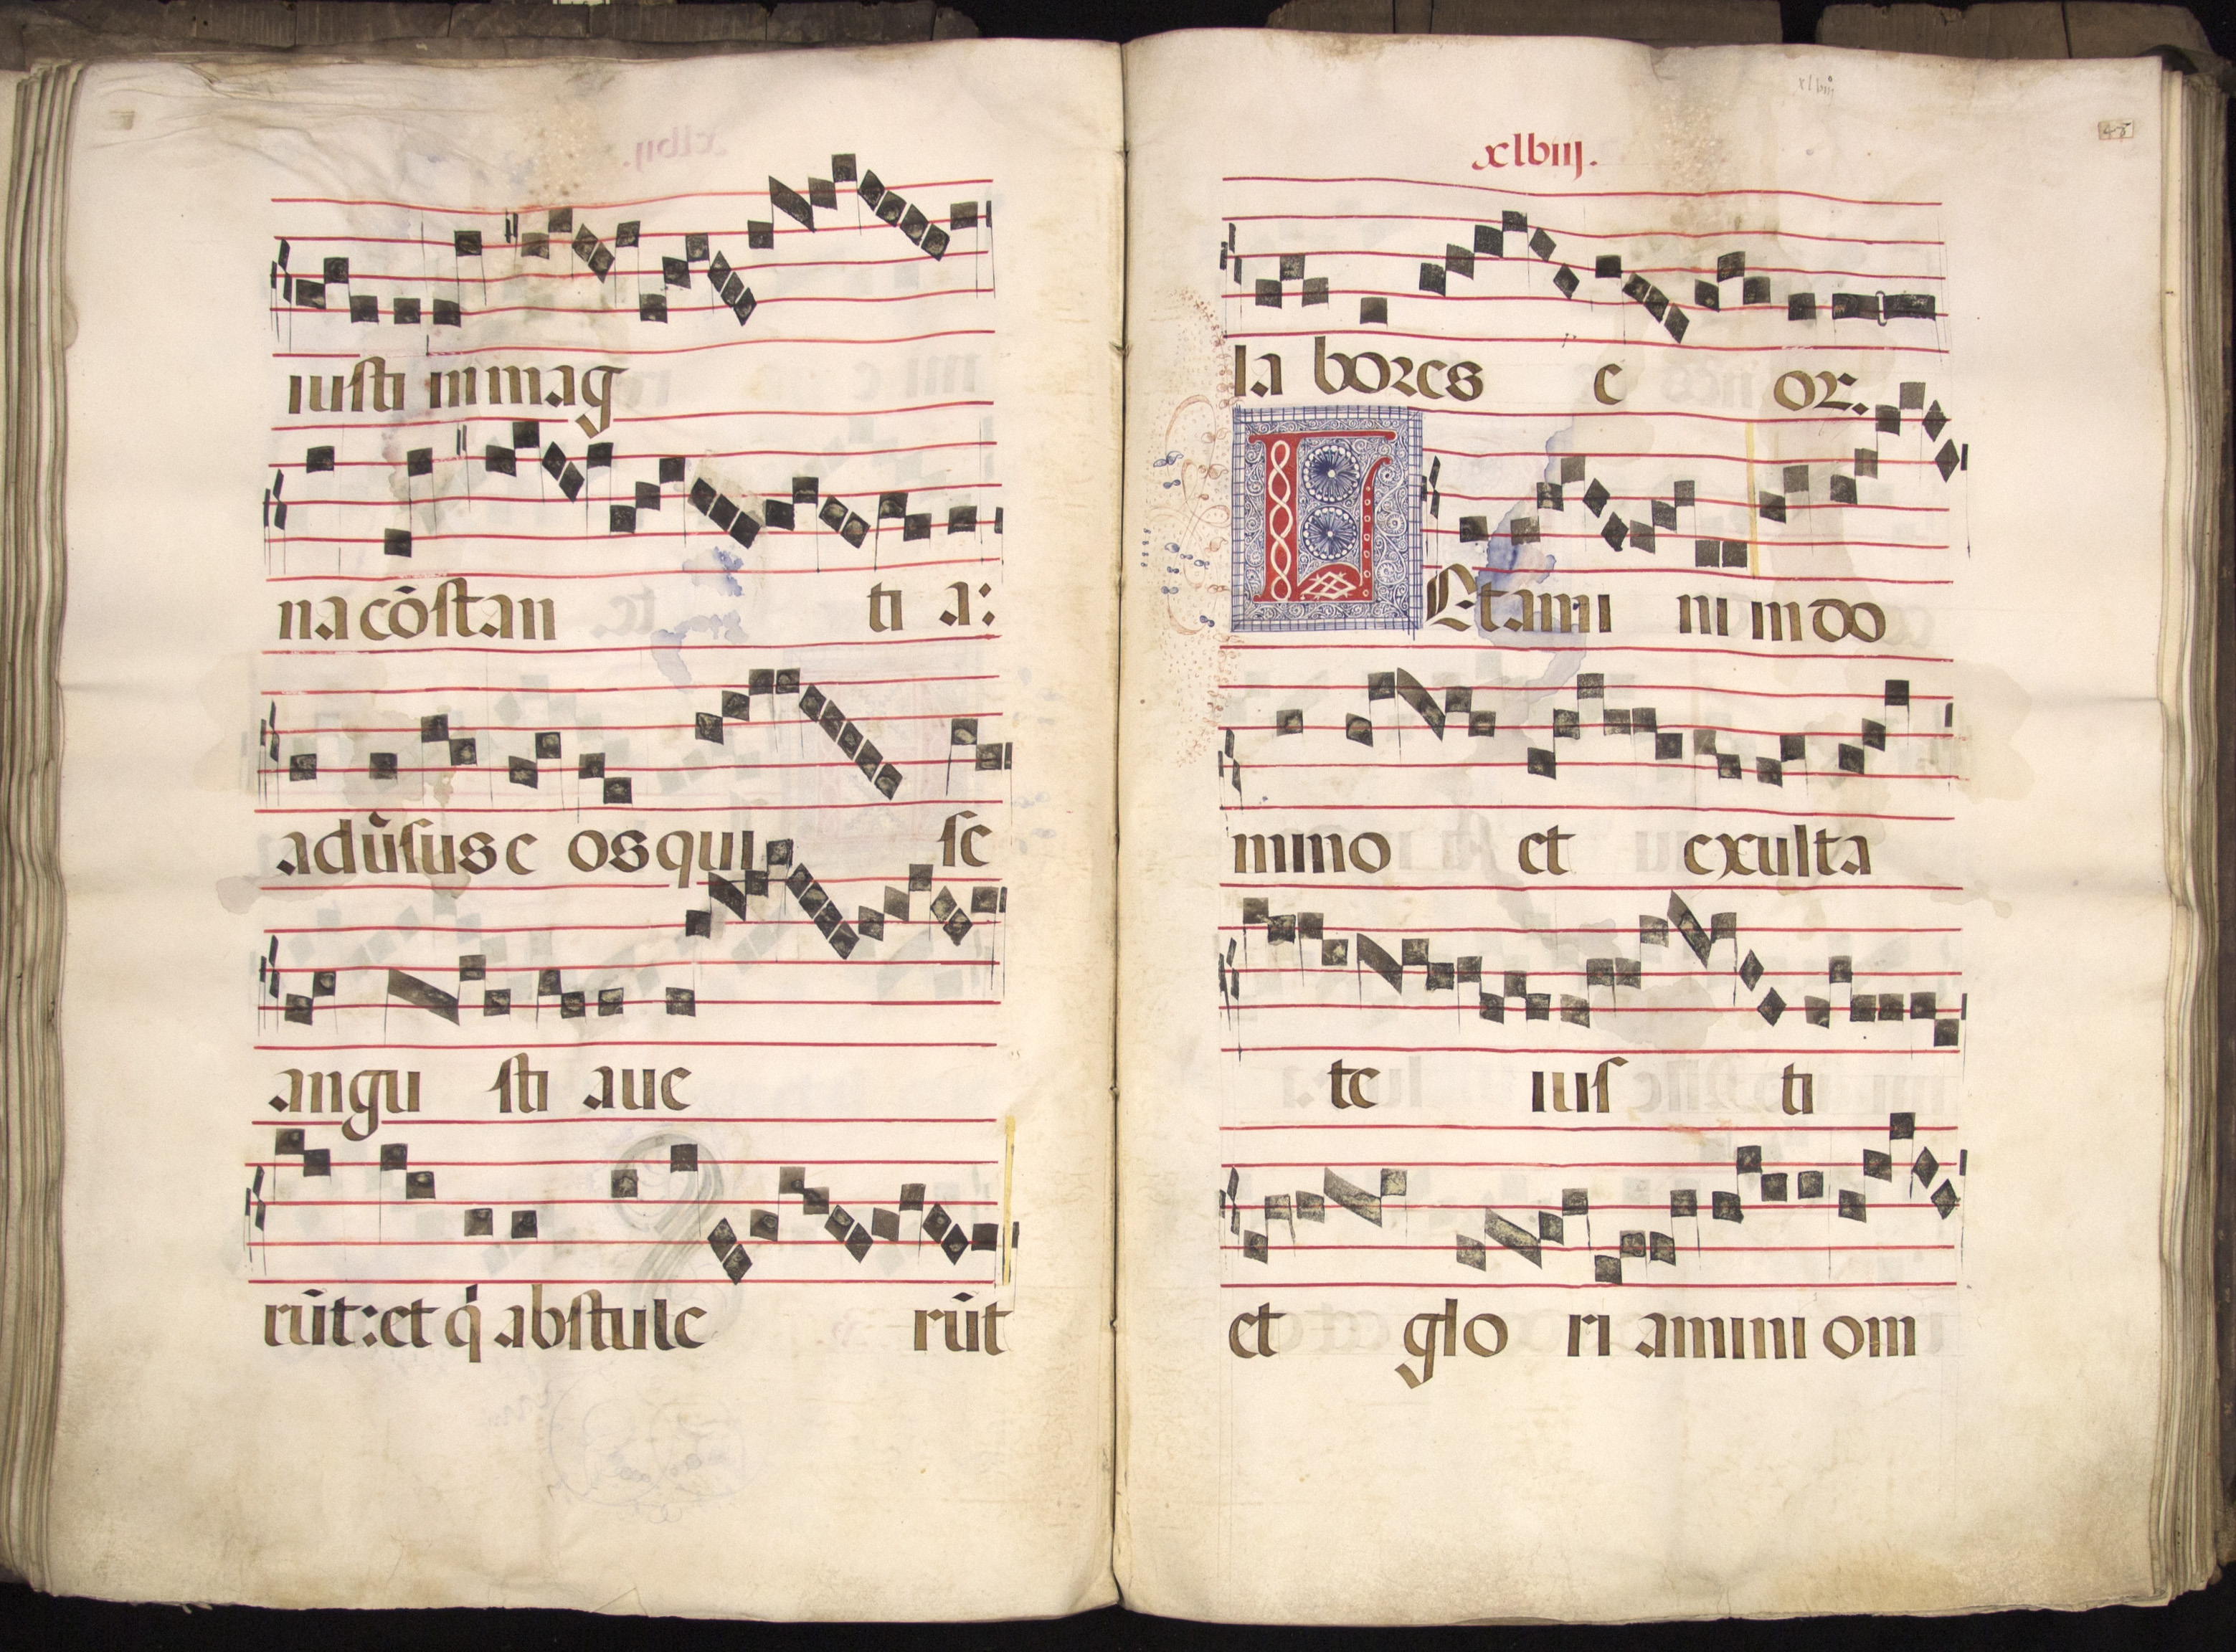 iusti in mag
na cōstan ti a:
adūsus e os qui se
angu sti aue
rūt: et q̇ abstule rūt
xlviij.
48
la bores e or.
LEtami ni in do
mino et exulta
te ius ti
et glo ri amini om